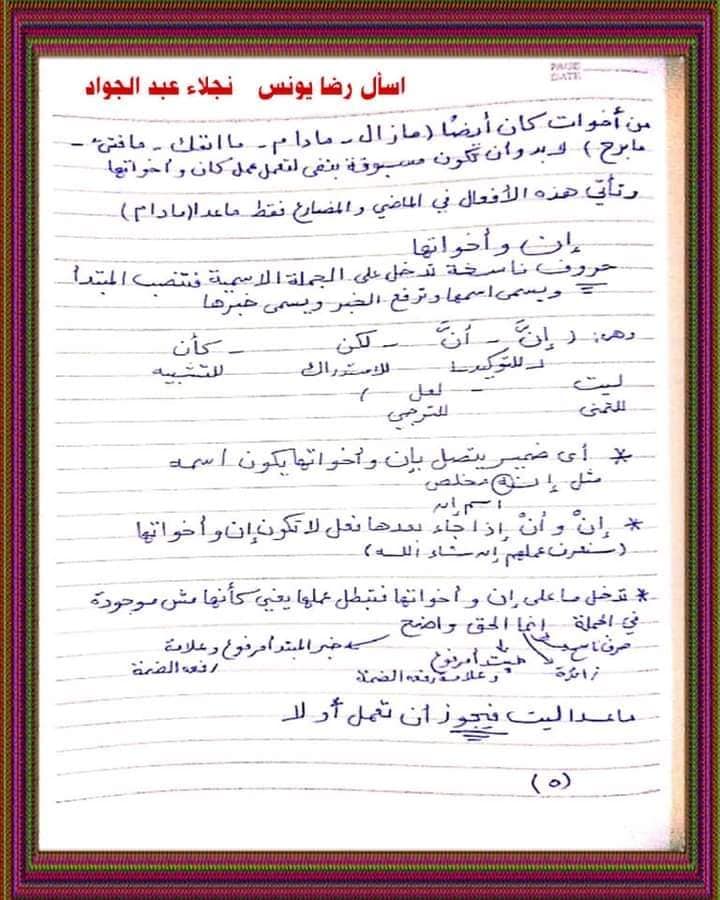 PAGE
DATE
اسأل رضا يونس نجلاء عبد الجواد
من أخوات كان أيضًا (مازال - مادام - ما انفك - مافتئ -
مابرح) لابد وأن تكون مسبوقة بنفى لتعمل عمل كان وأخواتها
وتأتي هذه الأفعال في الماضي والمضارع فقط ماعدا (مادام)
إن وأخواتها
حروف ناسخة تدخل على الجملة الاسمية فتنصب المبتدأ
ويسمى اسمها وترفع الخبر ويسمى خبرها
وهى: (إنَّ - أنَّ - لكن - كأن
للتوكيد للاستدراك للتشبيه
ليت - لعل)
للتمنى للترجي
* أى ضمير يتصل بإن وأخواتها يكون اسمه
مثل إنه مخلص
اسم إن
* إنْ وأنْ إذا جاء بعدها فعل لا تكون إن وأخواتها
(سنعرف عملهم إن شاء الله)
* تدخل ما على إن وأخواتها فتبطل عملها يعني كأنها مش موجودة
في الجملة إنما الحق واضح
حرف ناسخ زائدة مبتدأ مرفوع خبر المبتدأ مرفوع وعلامة
وعلامة رفعه الضمة رفعه الضمة
ماعدا ليت فيجوز أن تعمل أو لا
(٥)